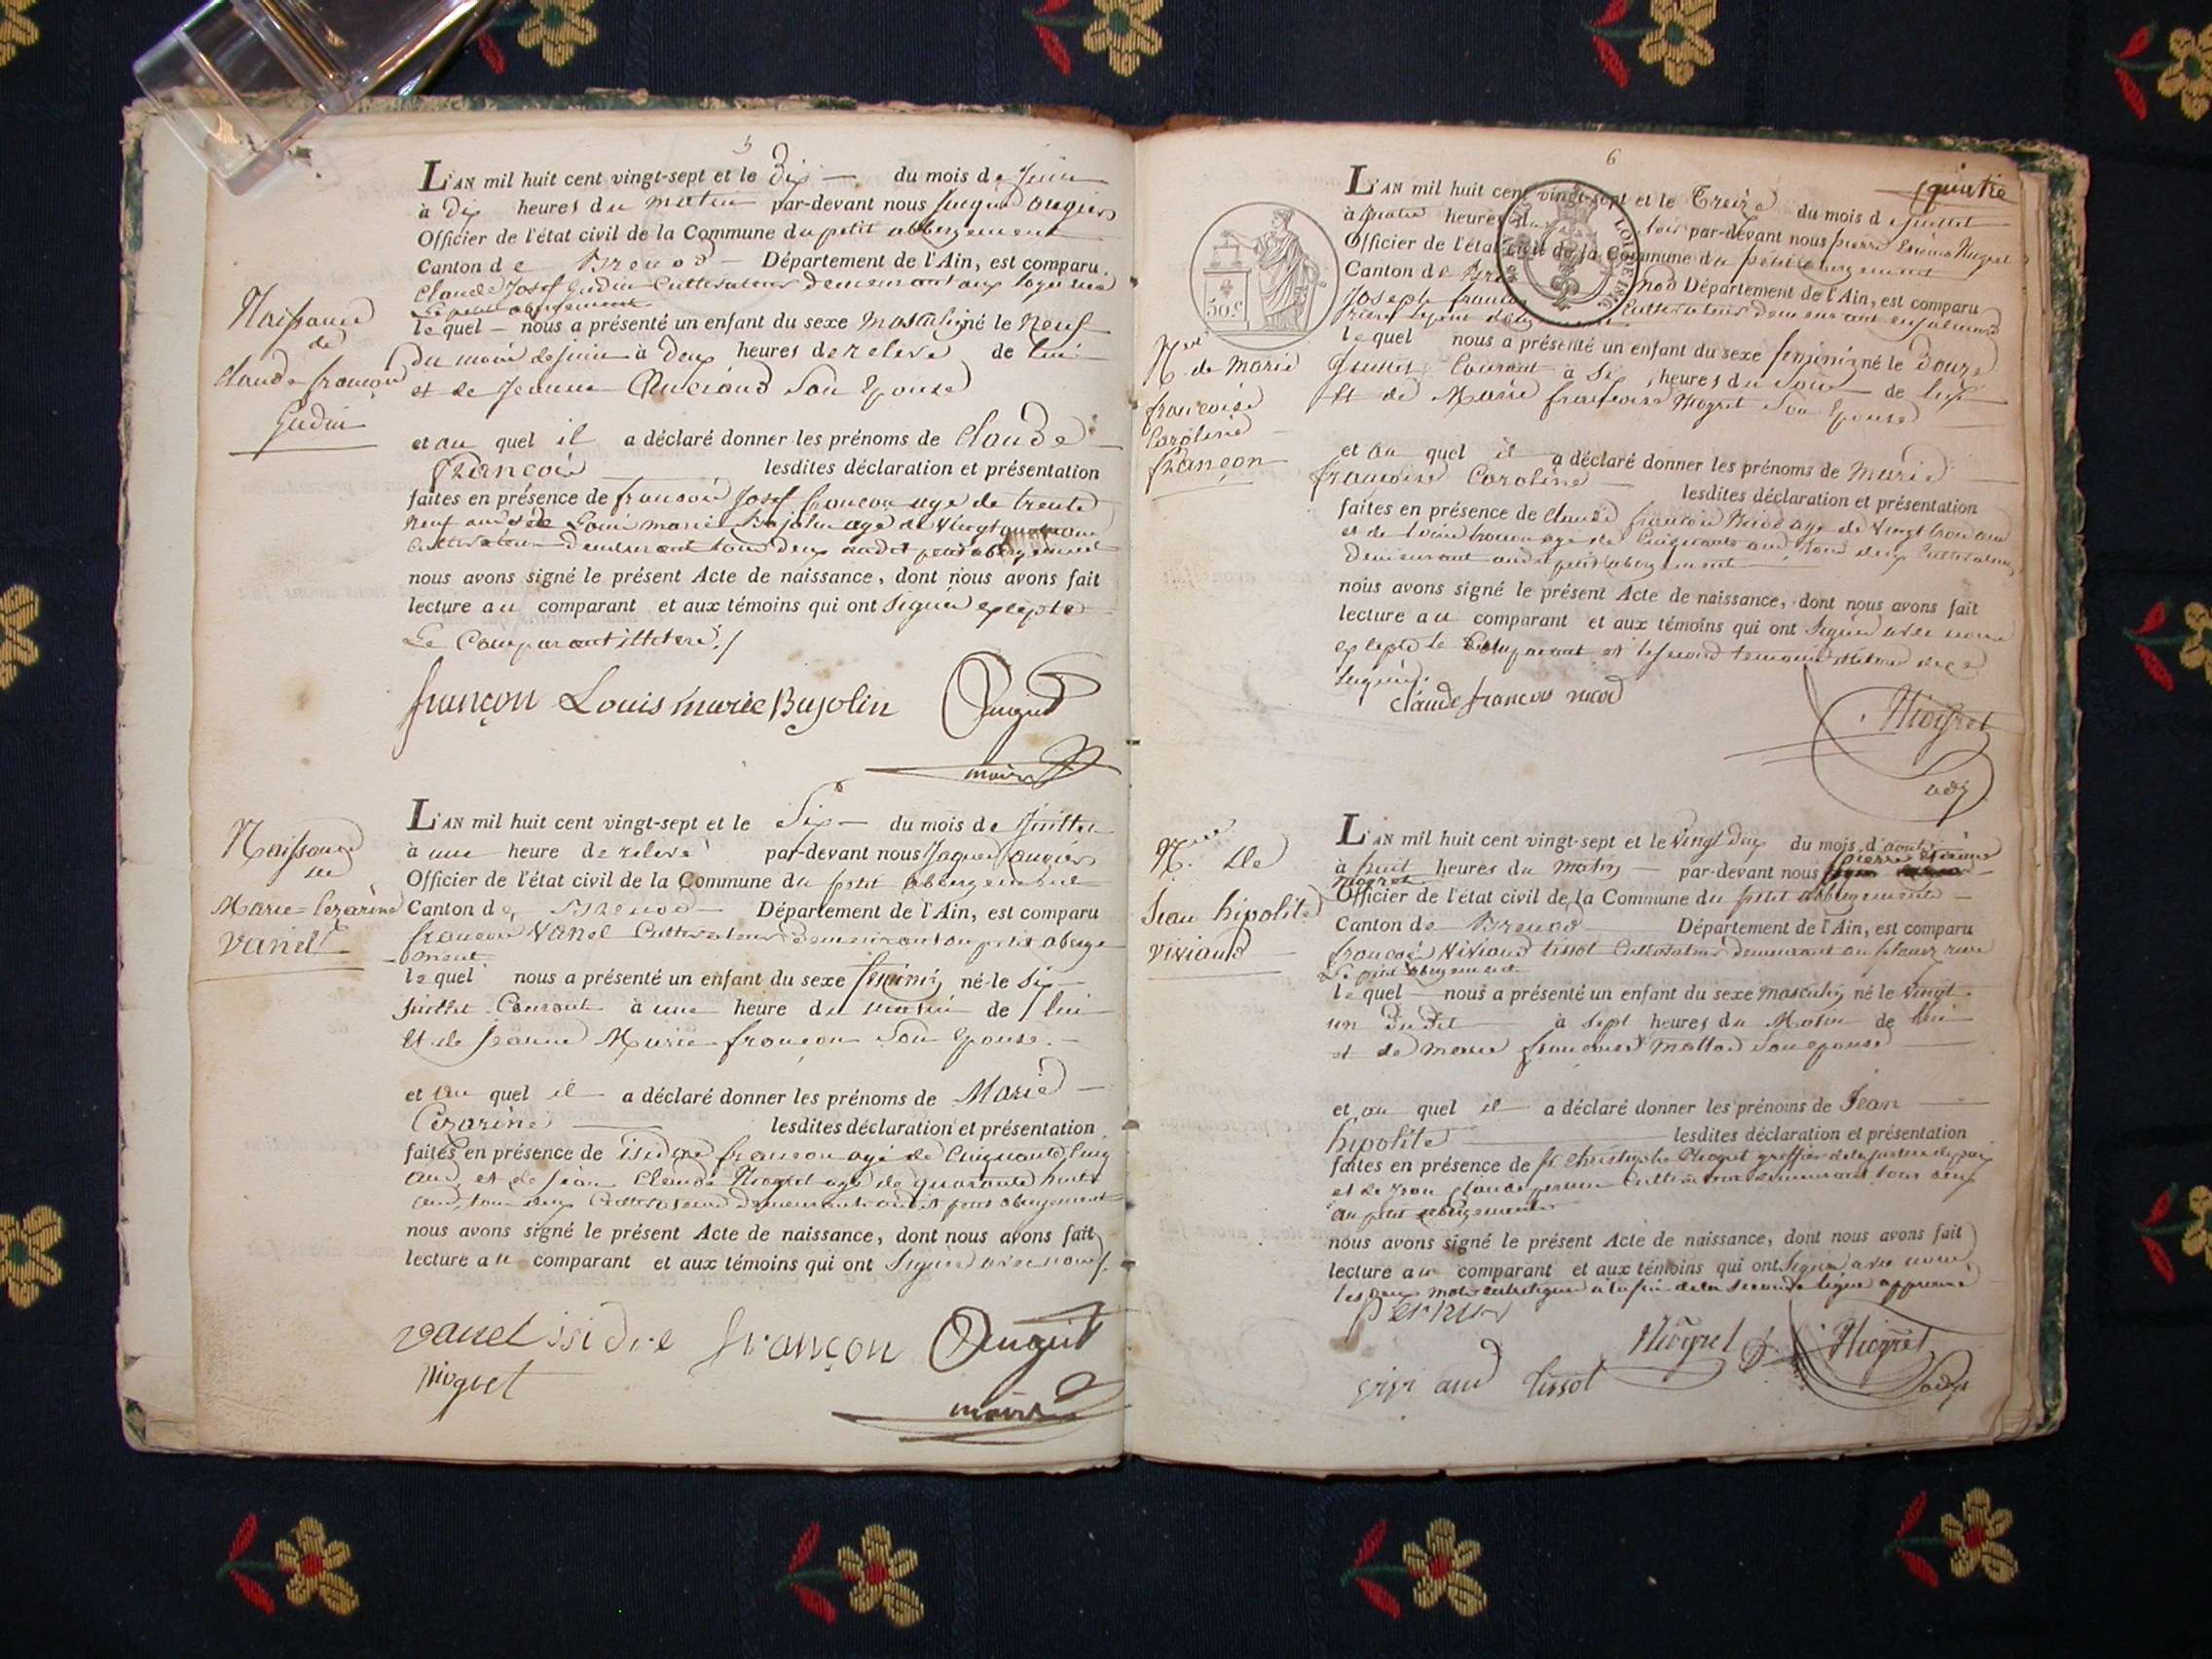 5
L'AN mil huit cent vingt-sept et le Dix du mois de Juin
à Dix heures du matin par-devant nous
Officier de l'état civil de la Commune du petit abbergement
Canton de Brenod Département de l'Ain, est comparu
Claude Josef Gudin Cultivateur Demeurant aux
Le petit abergement
lequel nous a présenté un enfant du sexe Masculin né le Neuf
Du mois de juin à Deux heures de relevé de lui
et de Jeanne son Epouse
Naissance
de
Claude françois
Gudin
et au quel il a déclaré donner les prénoms de Claude
François lesdites déclaration et présentation
faites en présence de françois Josef françon agé de trente
neuf ans et de Louis marie Bajolin agé de Vingt
Cultivateurs Demeurant tous deux audit petit abergement
nous avons signé le présent Acte de naissance, dont nous avons fait
lecture au comparant et aux témoins qui ont Signé excepté
Le Comparant
françon Louis marie Bajolin
maire
L'AN mil huit cent vingt-sept et le Six du mois de Juillet
à une heure de relevé par-devant nous
Officier de l'état civil de la Commune du petit abbergement
Canton de Brenod Département de l'Ain, est comparu
françois Vanel Cultivateur Demeurant au petit aberge
ment
lequel nous a présenté un enfant du sexe féminin né le Six
Juillet Courant à une heure du matin de lui
Et de Jeanne Marie françon Son Epouse
Naissance
de
Marie Cezarine
Vanel
et au quel il a déclaré donner les prénoms de Marie
Cezarine lesdites déclaration et présentation
faites en présence de isidore françon agé de Cinquante Cinq
ans et de Jean Claude Niogret agé de quarante huit
ans, tous deux Cultivateurs Demeurant audit petit abergement
nous avons signé le présent Acte de naissance, dont nous avons fait
lecture au comparant et aux témoins qui ont Signé avec nous
vanel issidre françon
Niogret
maire
6
L'AN mil huit cent vingt-sept et le Treize du mois de juillet
à quatre heures du soir par-devant nous pierre Etienne Niogret
Officier de l'état civil de la Commune du petit abergement
Canton de Brenod Département de l'Ain, est comparu
Joseph françon Cultivateur Demeurant
50.C
lequel nous a présenté un enfant du sexe féminin né le Douze
Juillet Courant à Six heures du Soir de lui
Et de Marie françoise Niogret Son Epouse
N.ce de Marie
françoise
Caroline
françon
et au quel il a déclaré donner les prénoms de Marie
françoise Caroline lesdites déclaration et présentation
faites en présence de Claude françois Nicod agé de Vingt trois ans
et de françon agé de Cinquante ans tous deux Cultivateurs
Demeurant audit petit abergement
nous avons signé le présent Acte de naissance, dont nous avons fait
lecture au comparant et aux témoins qui ont Signé avec nous
excepté le Comparant et le second temoin
Claude françois nicod
Niogret
adj
L'AN mil huit cent vingt-sept et le Vingt Deux du mois d'aout
à huit heures du Matin par-devant nous pierre Etienne
Niogret
Officier de l'état civil de la Commune du petit abbergement
Canton de Brenod Département de l'Ain, est comparu
françois Viviand tissot Cultivateur Demeurant au
Le petit abergement
lequel nous a présenté un enfant du sexe masculin né le Vingt
un Dudit à Sept heures du Matin de lui
et de Marie françoise son epouse
N.ce De
Jean hipolite
Viviand
et au quel il a déclaré donner les prénoms de Jean
hipolite lesdites déclaration et présentation
faites en présence de Christophe Niogret greffier de la justice de paix
et de Jean Claude Cultivateur Demeurant tous deux
au petit abergement
nous avons signé le présent Acte de naissance, dont nous avons fait
lecture au comparant et aux témoins qui ont Signé avec nous
les deux mots à la fin de la seconde ligne approuvé
viviand tissot Niogret Niogret
adj